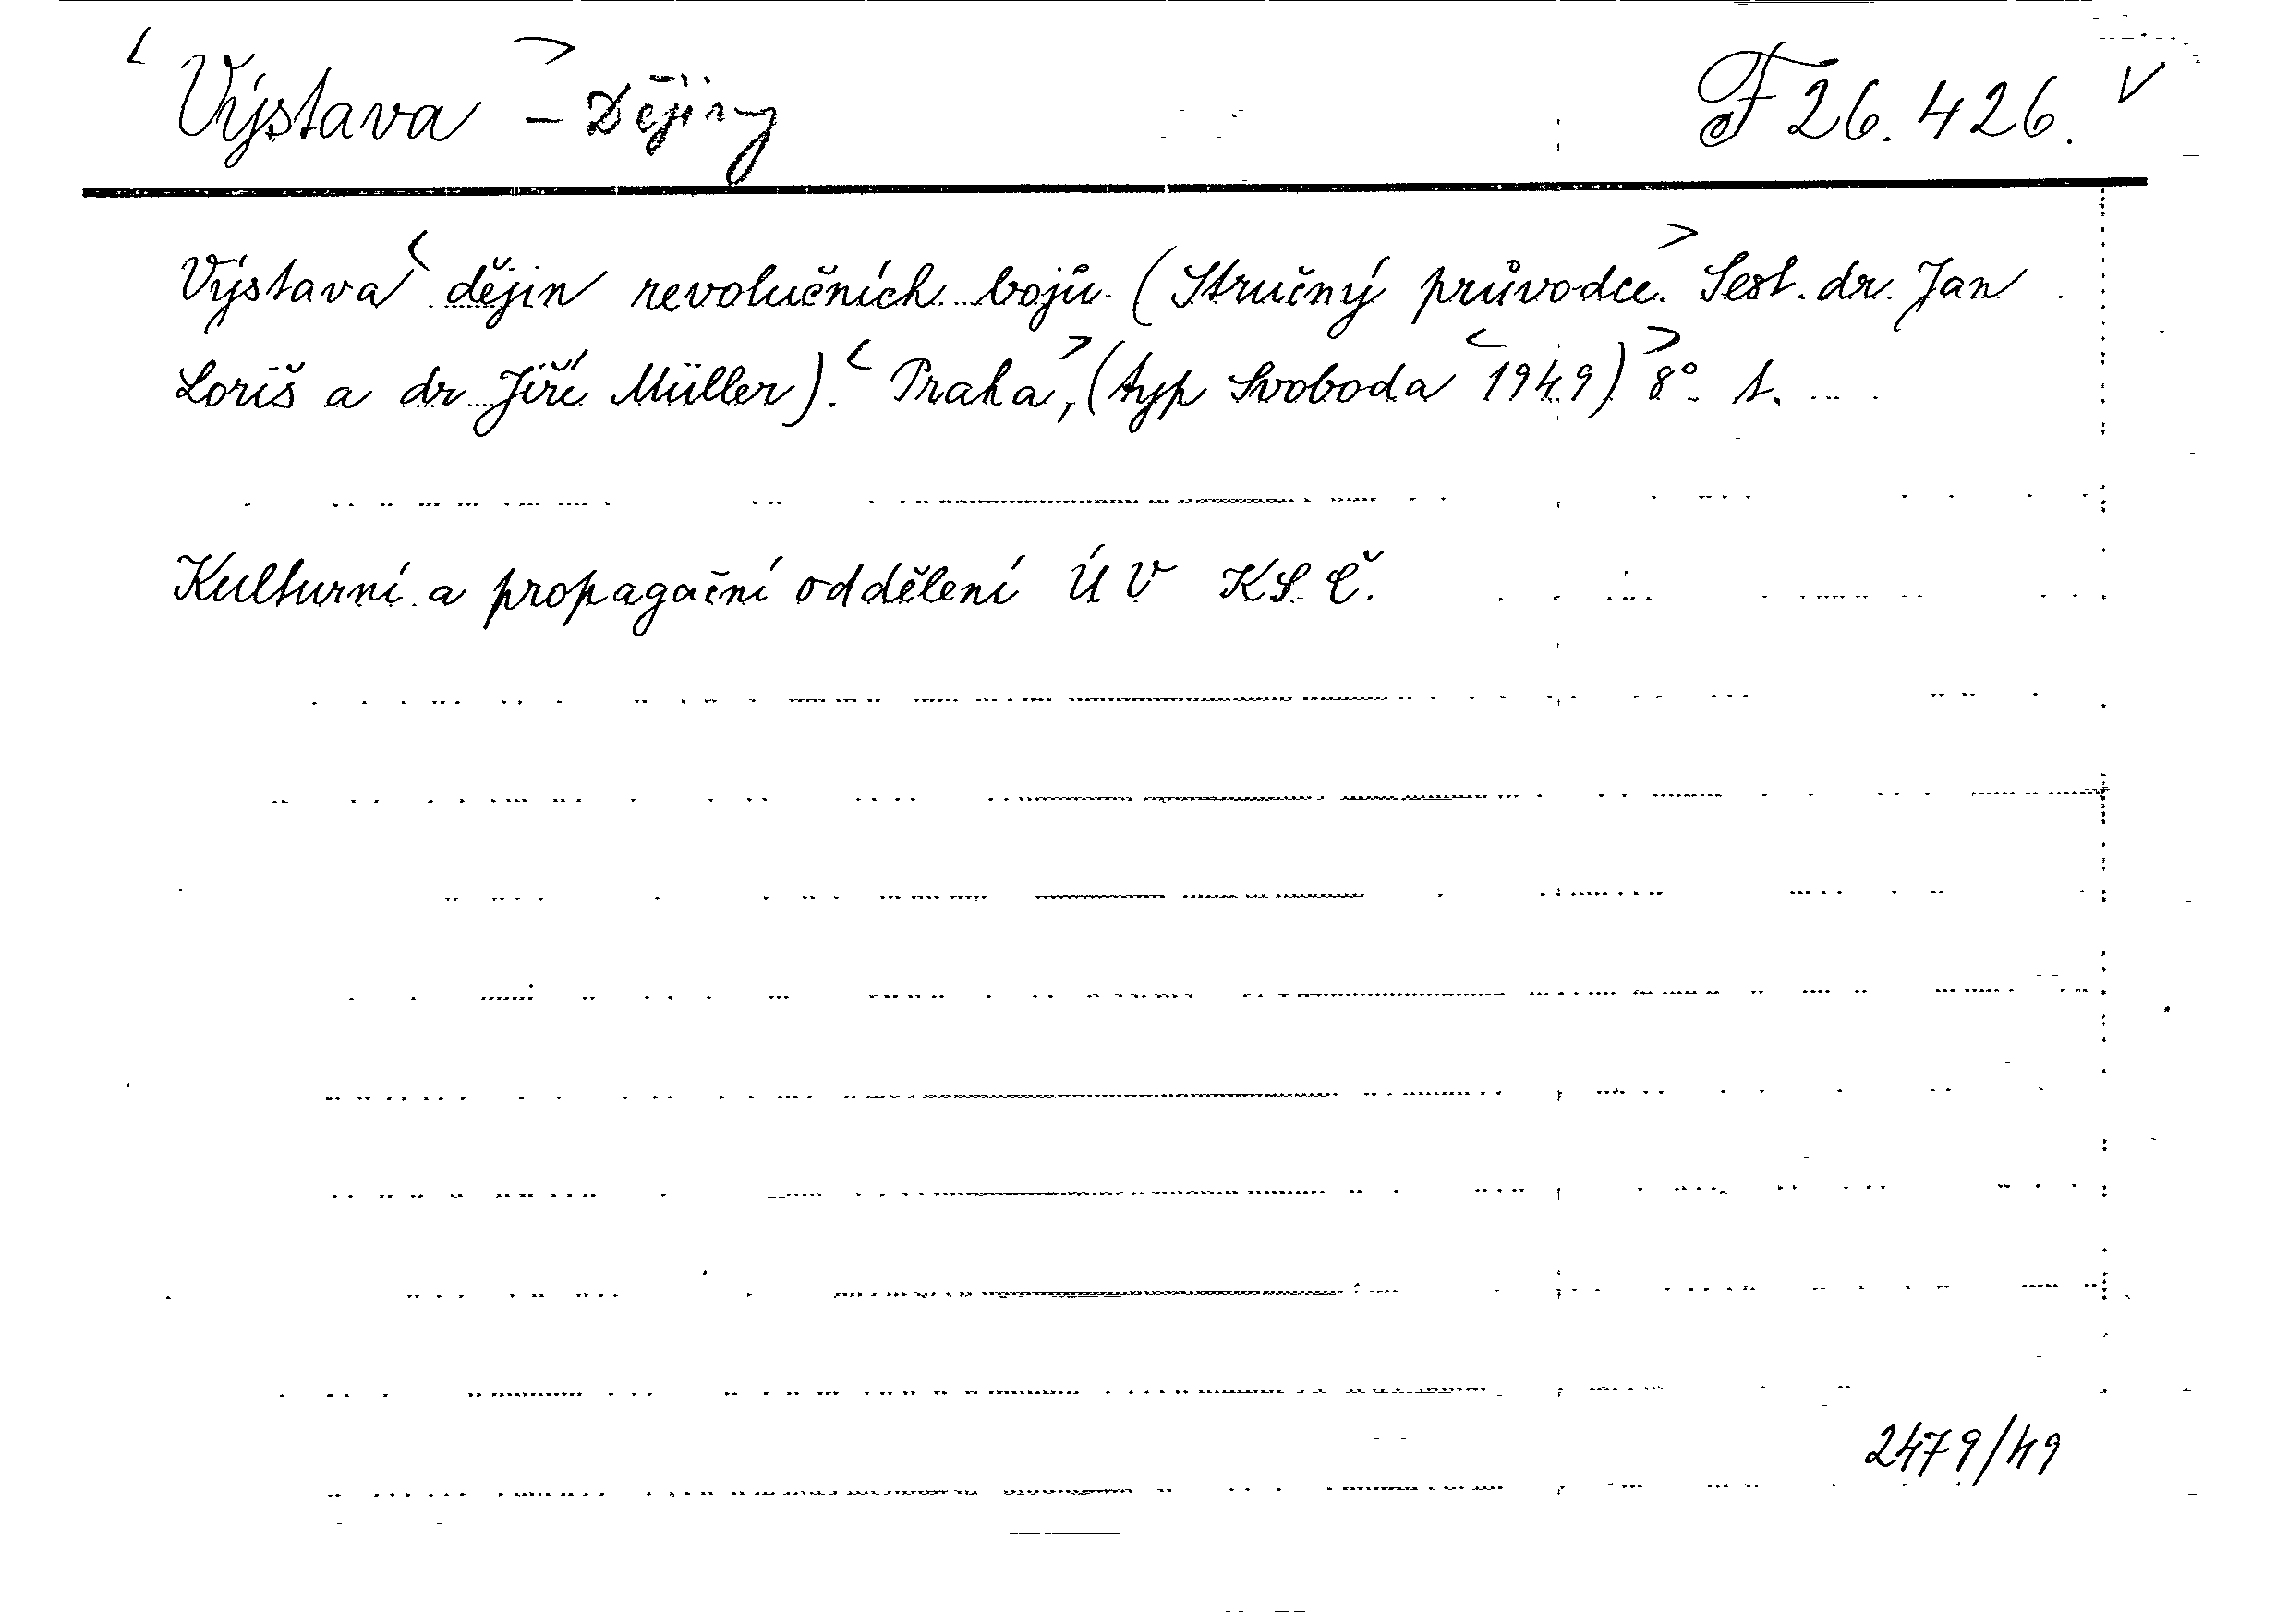 Výstava - Dějiny F 26.426. V
Výstava dějin revolučních bojů. (Stručný průvodce. Sest. dr. Jan
Loriš a dr Jiří Müller). Praha, (typ Svoboda 1949) 8°. s.
Kulturní a propagační oddělení ÚV KSČ.
2479/49